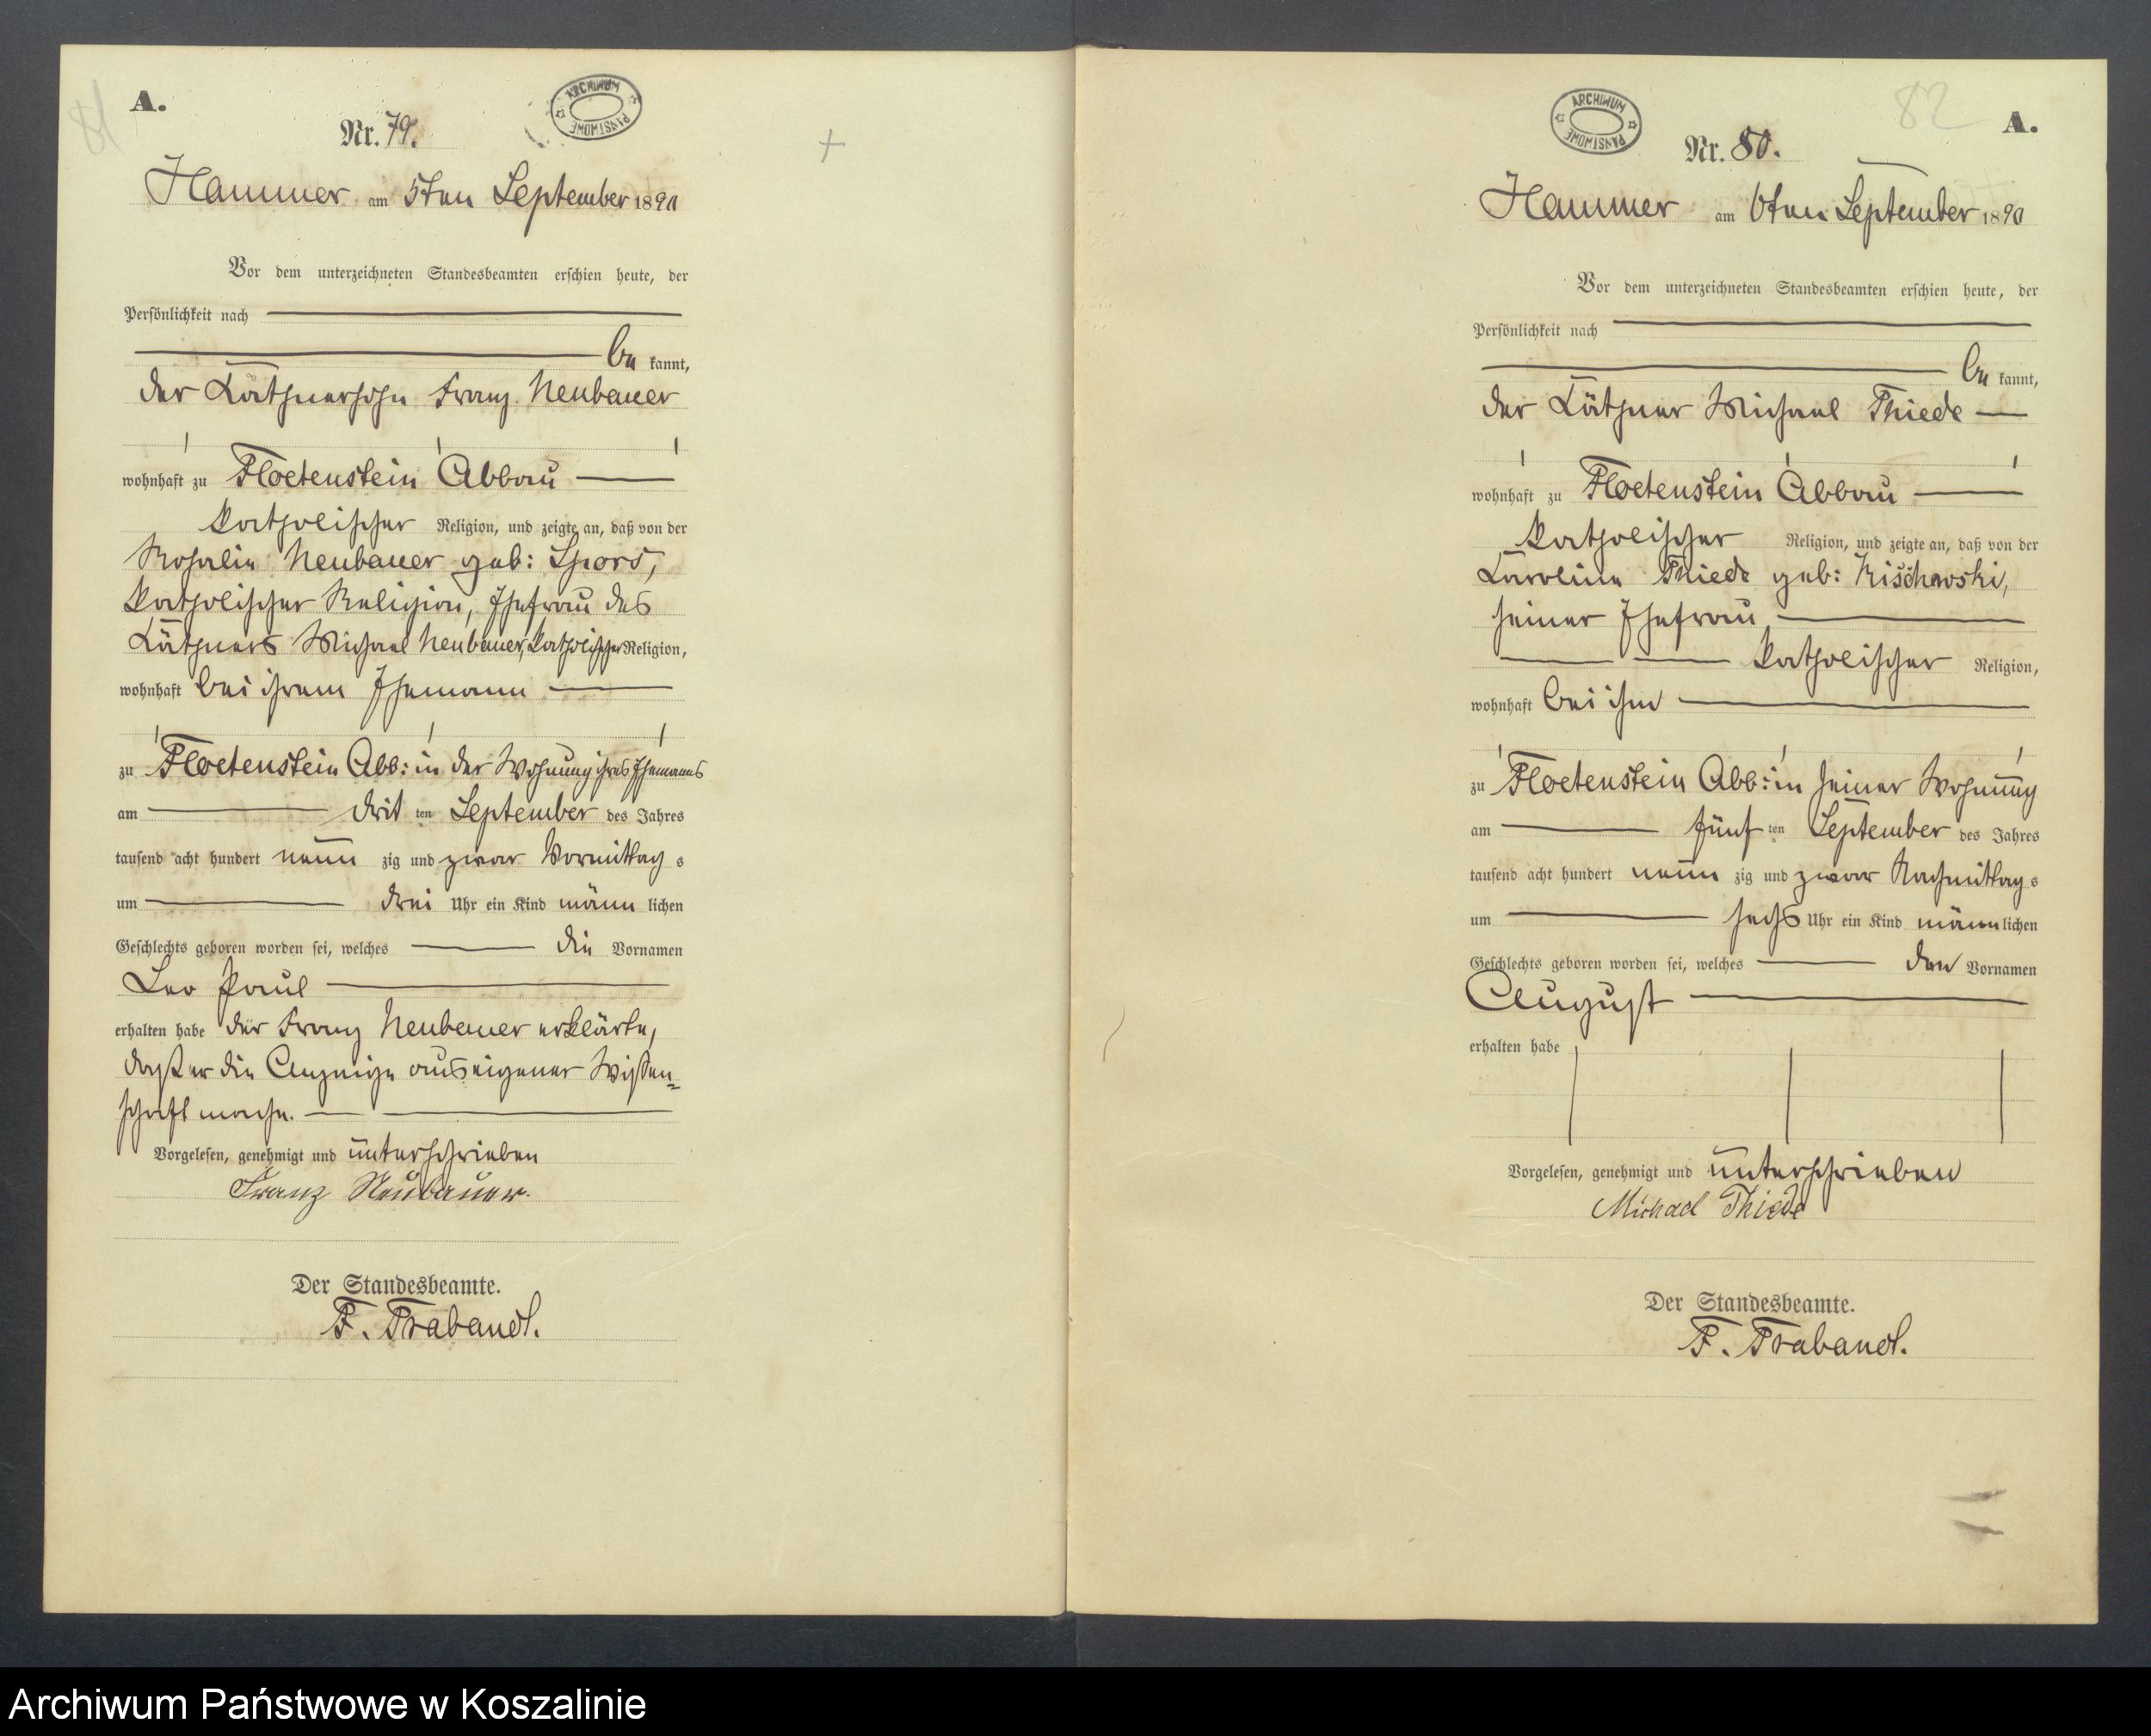 81
A.
ARCHIWUM PAŃSTWOWE
Nr. 79.
Hammer am 5ten September 1890
Vor dem unterzeichneten Standesbeamten erschien heute, der
Persönlichkeit nach
be kannt,
der Käthnersohn Franz Neubauer
wohnhaft zu Floetenstein Abbau
katholischer Religion, und zeigte an, daß von der
Rosalie Neubauer geb: Spors,
katholischer Religion, Ehefrau des
Käthners Michael Neubauer, katholischer Religion,
wohnhaft bei ihrem Ehemann
zu Floetenstein Abb: in der Wohnung ihres Ehemanns
am drit ten September des Jahres
tausend acht hundert neun zig und zwar Vormittag s
um drei Uhr ein Kind männ lichen
Geschlechts geboren worden sei, welches die Vornamen
Leo Paul
erhalten habe der Franz Neubauer erklärte,
daß er die Anzeige aus eigener Wissen=
schaft mache.
Vorgelesen, genehmigt und unterschrieben
Franz Neubauer.
Der Standesbeamte.
F. Trabandt.
82
A.
ARCHIWUM PAŃSTWOWE
Nr. 80.
Hammer am 6ten September 1890
Vor dem unterzeichneten Standesbeamten erschien heute, der
Persönlichkeit nach
be kannt,
der Käthner Michael Thiede
wohnhaft zu Floetenstein Abbau
katholischer Religion, und zeigte an, daß von der
Karoline Thiede geb:
seiner Ehefrau
katholischer Religion,
wohnhaft bei ihm
zu Floetenstein Abb: in seiner Wohnung
am fünf ten September des Jahres
tausend acht hundert neun zig und zwar Nachmittag s
um sechs Uhr ein Kind männ lichen
Geschlechts geboren worden sei, welches den Vornamen
August
erhalten habe
Vorgelesen, genehmigt und unterschrieben
Michael Thiede
Der Standesbeamte.
F. Trabandt.
Archiwum Państwowe w Koszalinie